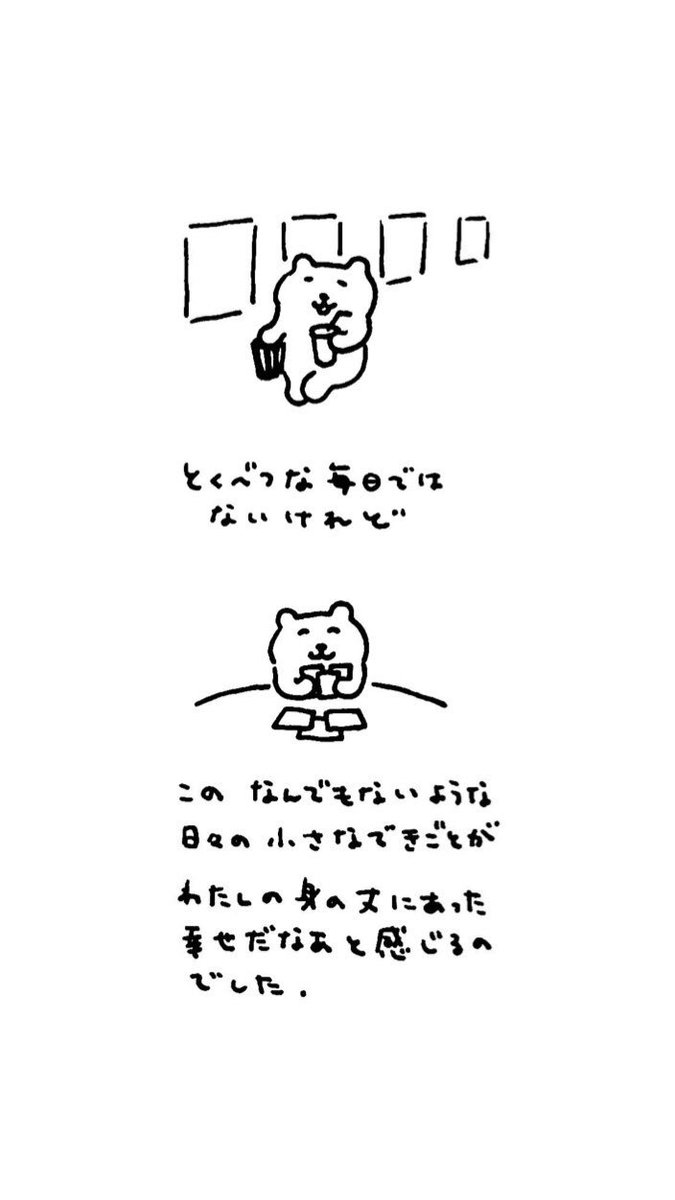 とくべつな毎日では
ないけれど
この なんでもないような
日々の小さなできごとが
わたしの身の丈にあった
幸せだなあと感じるの
でした.